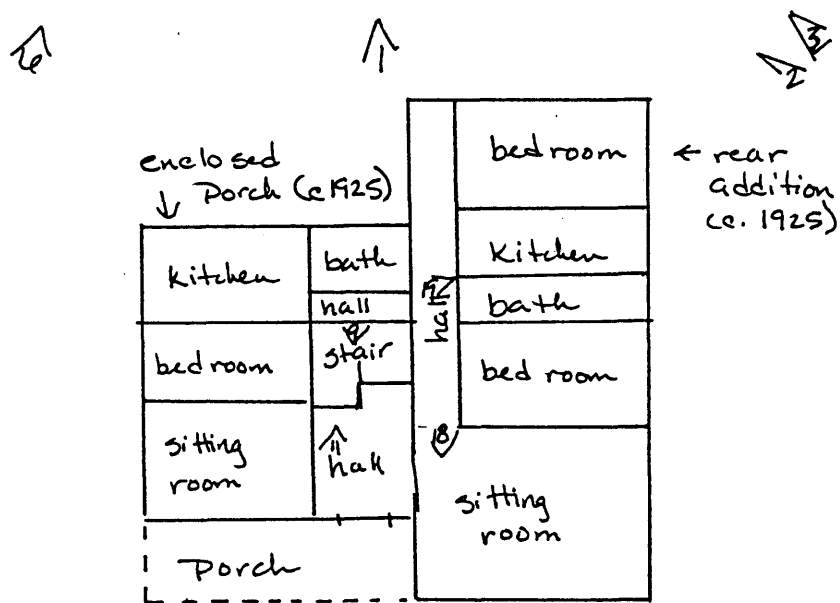 6
1
3
2
enclosed
Porch (c1925)
bedroom
← rear
addition
(c. 1925)
kitchen
bath
kitchen
hall
19
hall
bath
9
stair
bedroom
bedroom
18
sitting
room
11
hall
sitting
room
Porch